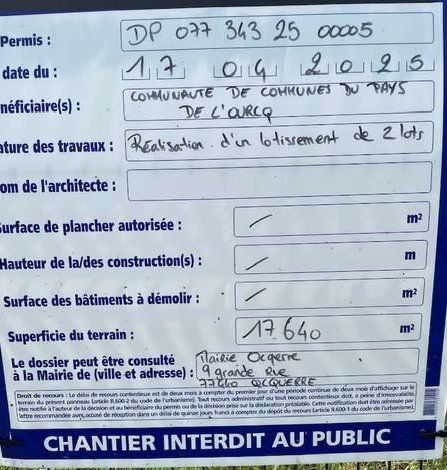 Permis : DP 077 343 25 00005
date du : 17 04 2025
néficiaire(s) : COMMUNAUTE DE COMMUNES DU PAYS
DE L'OURCQ
ature des travaux : Réalisation d'un lotissement de 2 lots
om de l'architecte :
urface de plancher autorisée : / m²
Hauteur de la/des construction(s) : / m
Surface des bâtiments à démolir : / m²
Superficie du terrain : 17 640 m²
Le dossier peut être consulté Mairie Ocquerre
à la Mairie de (ville et adresse) : 9 grande Rue
77440 OCQUERRE
Droit de recours : Le délai de recours contentieux est de deux mois à compter du premier jour d'une période continue de deux mois d'affichage sur le
terrain du présent panneau (article R.600-2 du code de l'urbanisme). Tout recours administratif ou tout recours contentieux doit, à peine d'irrecevabilité,
être notifié à l'auteur de la décision et au bénéficiaire du permis ou de la décision prise sur la déclaration préalable. Cette notification doit être adressée par
lettre recommandée avec accusé de réception dans un délai de quinze jours francs à compter du dépôt du recours (article R.600-1 du code de l'urbanisme).
CHANTIER INTERDIT AU PUBLIC